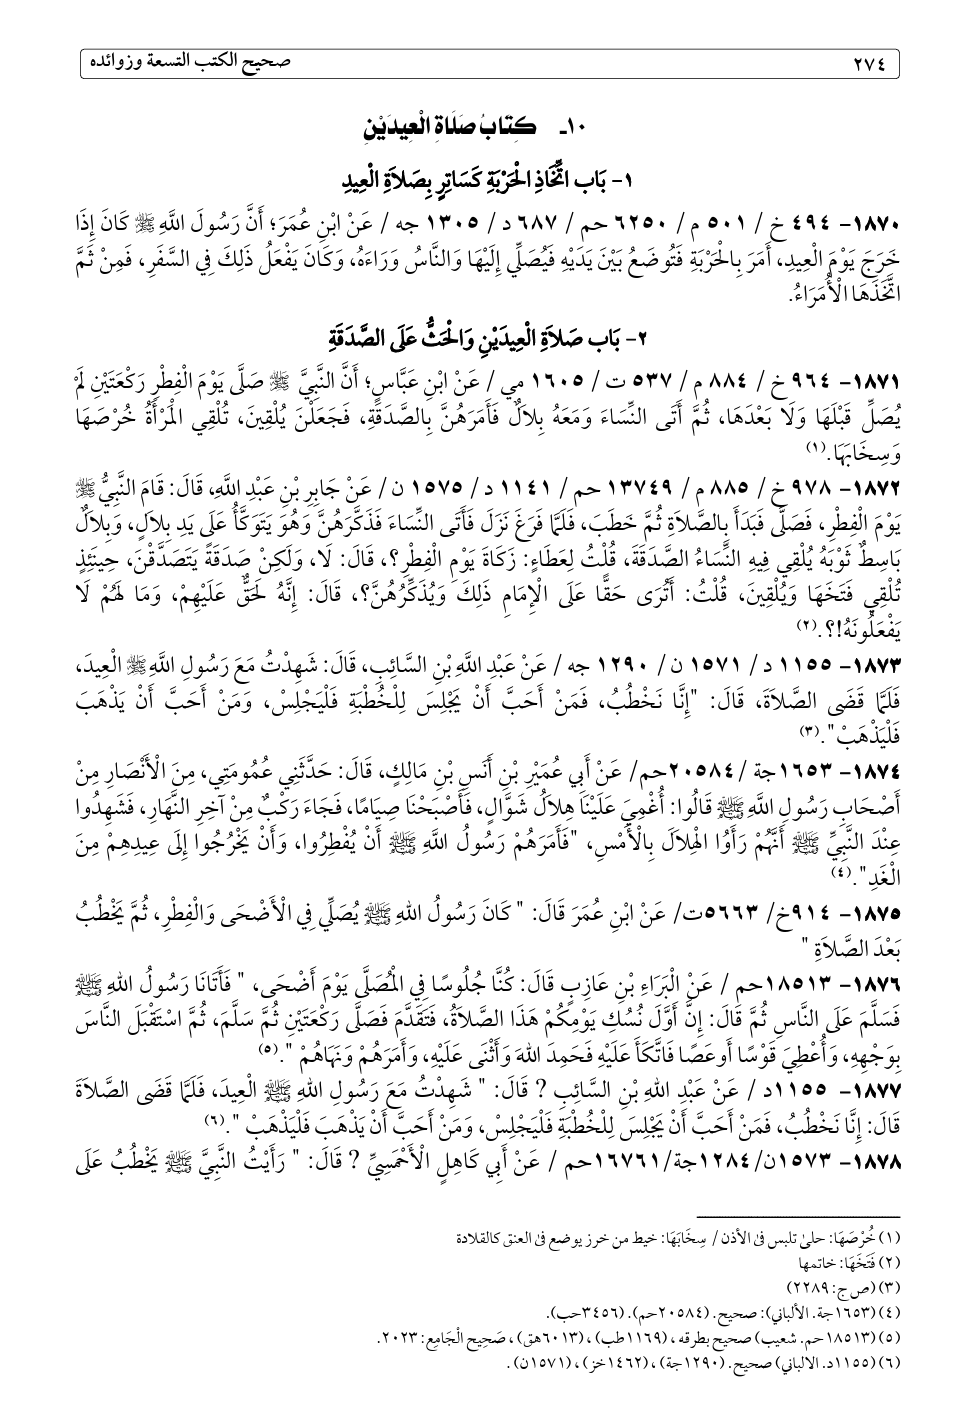 ٢٧٤ صحيح الكتب التسعة وزوائده
١٠ـ كِتَابُ صَلَاةِ الْعِيدَيْنِ
١- بَاب اتِّخَاذِ الْحَرْبَةِ كَسَاتِرٍ بِصَلاَةِ الْعِيدِ
١٨٧٠- ٤٩٤ خ / ٥٠١ م / ٦٢٥٠ حم / ٦٨٧ د / ١٣٠٥ جه / عَنْ ابْنِ عُمَرَ؛ أَنَّ رَسُولَ اللَّهِ ﷺ كَانَ إِذَا
خَرَجَ يَوْمَ الْعِيدِ، أَمَرَ بِالْحَرْبَةِ فَتُوضَعُ بَيْنَ يَدَيْهِ فَيُصَلِّي إِلَيْهَا وَالنَّاسُ وَرَاءَهُ، وَكَانَ يَفْعَلُ ذَلِكَ فِي السَّفَرِ، فَمِنْ ثَمَّ
اتَّخَذَهَا الْأُمَرَاءُ.
٢- بَاب صَلاَةِ الْعِيدَيْنِ وَالْحَثُّ عَلَى الصَّدَقَةِ
١٨٧١- ٩٦٤ خ / ٨٨٤ م / ٥٣٧ ت / ١٦٠٥ مي / عَنْ ابْنِ عَبَّاسٍ؛ أَنَّ النَّبِيَّ ﷺ صَلَّى يَوْمَ الْفِطْرِ رَكْعَتَيْنِ لَمْ
يُصَلِّ قَبْلَهَا وَلَا بَعْدَهَا، ثُمَّ أَتَى النِّسَاءَ وَمَعَهُ بِلاَلٌ فَأَمَرَهُنَّ بِالصَّدَقَةِ، فَجَعَلْنَ يُلْقِينَ، تُلْقِي الْمَرْأَةُ خُرْصَهَا
وَسِخَابَهَا.(١)
١٨٧٢- ٩٧٨ خ / ٨٨٥ م / ١٣٧٤٩ حم / ١١٤١ د / ١٥٧٥ ن / عَنْ جَابِرِ بْنِ عَبْدِ اللَّهِ، قَالَ: قَامَ النَّبِيُّ ﷺ
يَوْمَ الْفِطْرِ، فَصَلَّى فَبَدَأَ بِالصَّلاَةِ ثُمَّ خَطَبَ، فَلَمَّا فَرَغَ نَزَلَ فَأَتَى النِّسَاءَ فَذَكَّرَهُنَّ وَهُوَ يَتَوَكَّأُ عَلَى يَدِ بِلاَلٍ، وَبِلاَلٌ
بَاسِطٌ ثَوْبَهُ يُلْقِي فِيهِ النِّسَاءُ الصَّدَقَةَ، قُلْتُ لِعَطَاءٍ: زَكَاةَ يَوْمِ الْفِطْرِ؟، قَالَ: لَا، وَلَكِنْ صَدَقَةً يَتَصَدَّقْنَ، حِينَئِذٍ
تُلْقِي فَتَخَهَا وَيُلْقِينَ، قُلْتُ: أَتُرَى حَقًّا عَلَى الْإِمَامِ ذَلِكَ وَيُذَكِّرُهُنَّ؟، قَالَ: إِنَّهُ لَحَقٌّ عَلَيْهِمْ، وَمَا لَهُمْ لَا
يَفْعَلُونَهُ!؟.(٢)
١٨٧٣- ١١٥٥ د / ١٥٧١ ن / ١٢٩٠ جه / عَنْ عَبْدِ اللَّهِ بْنِ السَّائِبِ، قَالَ: شَهِدْتُ مَعَ رَسُولِ اللَّهِ ﷺ الْعِيدَ،
فَلَمَّا قَضَى الصَّلاَةَ، قَالَ: "إِنَّا نَخْطُبُ، فَمَنْ أَحَبَّ أَنْ يَجْلِسَ لِلْخُطْبَةِ فَلْيَجْلِسْ، وَمَنْ أَحَبَّ أَنْ يَذْهَبَ
فَلْيَذْهَبْ".(٣)
١٨٧٤- ١٦٥٣جة /٢٠٥٨٤حم/ عَنْ أَبِي عُمَيْرِ بْنِ أَنَسِ بْنِ مَالِكٍ، قَالَ: حَدَّثَنِي عُمُومَتِي، مِنَ الْأَنْصَارِ مِنْ
أَصْحَابِ رَسُولِ اللَّهِ ﷺ قَالُوا: أُغْمِيَ عَلَيْنَا هِلاَلُ شَوَّالٍ، فَأَصْبَحْنَا صِيَامًا، فَجَاءَ رَكْبٌ مِنْ آخِرِ النَّهَارِ، فَشَهِدُوا
عِنْدَ النَّبِيِّ ﷺ أَنَّهُمْ رَأَوُا الْهِلاَلَ بِالْأَمْسِ، "فَأَمَرَهُمْ رَسُولُ اللَّهِ ﷺ أَنْ يُفْطِرُوا، وَأَنْ يَخْرُجُوا إِلَى عِيدِهِمْ مِنَ
الْغَدِ".(٤)
١٨٧٥- ٩١٤خ/ ٥٦٦٣ت/ عَنْ ابْنِ عُمَرَ قَالَ: " كَانَ رَسُولُ اللهِ ﷺ يُصَلِّي فِي الْأَضْحَى وَالْفِطْرِ، ثُمَّ يَخْطُبُ
بَعْدَ الصَّلاَةِ "
١٨٧٦- ١٨٥١٣حم / عَنْ الْبَرَاءِ بْنِ عَازِبٍ قَالَ: كُنَّا جُلُوسًا فِي الْمُصَلَّى يَوْمَ أَضْحَى، " فَأَتَانَا رَسُولُ اللهِ ﷺ
فَسَلَّمَ عَلَى النَّاسِ ثُمَّ قَالَ: إِنَّ أَوَّلَ نُسُكِ يَوْمِكُمْ هَذَا الصَّلاَةُ، فَتَقَدَّمَ فَصَلَّى رَكْعَتَيْنِ ثُمَّ سَلَّمَ، ثُمَّ اسْتَقْبَلَ النَّاسَ
بِوَجْهِهِ، وَأُعْطِيَ قَوْسًا أَوعَصًا فَاتَّكَأَ عَلَيْهِ فَحَمِدَ اللهَ وَأَثْنَى عَلَيْهِ، وَأَمَرَهُمْ وَنَهَاهُمْ ".(٥)
١٨٧٧- ١١٥٥د / عَنْ عَبْدِ اللهِ بْنِ السَّائِبِ ? قَالَ: " شَهِدْتُ مَعَ رَسُولِ اللهِ ﷺ الْعِيدَ، فَلَمَّا قَضَى الصَّلاَةَ
قَالَ: إِنَّا نَخْطُبُ، فَمَنْ أَحَبَّ أَنْ يَجْلِسَ لِلْخُطْبَةِ فَلْيَجْلِسْ، وَمَنْ أَحَبَّ أَنْ يَذْهَبَ فَلْيَذْهَبْ ".(٦)
١٨٧٨- ١٥٧٣ن/ ١٢٨٤جة/١٦٧٦١حم / عَنْ أَبِي كَاهِلٍ الْأَحْمَسِيِّ ? قَالَ: " رَأَيْتُ النَّبِيَّ ﷺ يَخْطُبُ عَلَى
(١) خُرْصَهَا: حلىٰ تلبس فى الأذن / سِخَابَهَا: خيط من خرز يوضع فى العنق كالقلادة
(٢) فَتَخَهَا: خاتمها
(٣) (ص ج: ٢٢٨٩)
(٤) (١٦٥٣جة. الألباني): صحيح. (٢٠٥٨٤حم). (٣٤٥٦حب).
(٥) (١٨٥١٣حم. شعيب) صحيح بطرقه ، (١١٦٩طب) ، (٦٠١٣هق) ، صَحِيح الْجَامِع: ٢٠٢٣.
(٦) (١١٥٥د. الالباني) صحيح. (١٢٩٠جة) ، (١٤٦٢خز) ، (١٥٧١ن) .